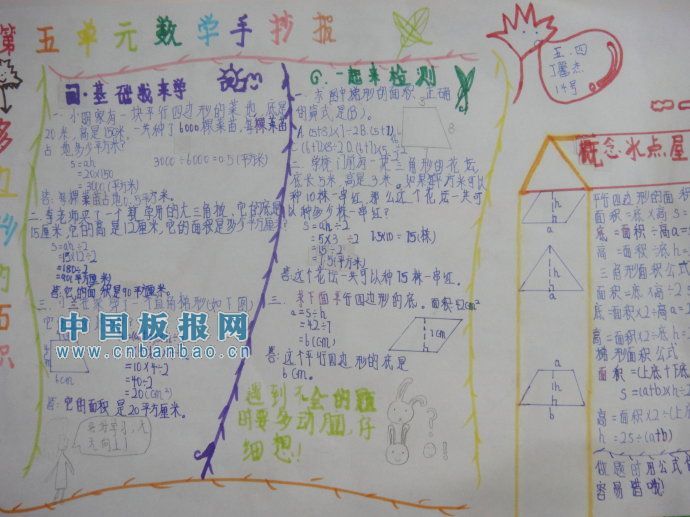 第五单元数学手抄报
多边形的面积
四·基础我来学
一、小明家有一块平行四边形的菜地,底是
20米,高是150米,一共种了6000棵菜苗,每棵菜苗
占地多少平方米?
S=ah
=20×150
=3000(平方米)
3000÷6000=0.5(平方米)
答:每棵菜苗占地0.5平方米。
二、李老师买了一个
的大三角板,它的底是
15厘米,它的高是12厘米,它的面积是多少平方厘米?
S=ah÷2
=15×12÷2
=180÷2
=90(平方厘米)
答:它的面积是90平方厘米。
三、
一个直角梯形(如下图)
6cm
=10×4÷2
=40÷2
=20(cm²)
答:它的面积是20平方厘米。
好好学习,天
天向上!
一起来检测
一、求图中梯形的面积,正确
的算式,是(B)。
5
8
二、学校门前有一块三角形的花坛,
底长5米,高是3米。如果每平方米可以
种10株一串红,那么这个花坛一共可
以种多少株一串红?
S=ah÷2
=5×3÷2
=15÷2
=7.5(平方米)
7.5×10=75(株)
答:这个花坛一共可以种75株一串红。
三、求下面平行四边形的底。面积:42cm²
a=S÷h
=42÷7
=6(cm)
7cm
答:这个平行四边形的底是
6cm。
遇到不会的题
时要多动脑,仔
细想!
五.四
14号
概念·水点屋
平行四边形的面积
面积=底×高 S=
底=面积÷高 a=S
高=面积÷底 h=
三角形面积公式
面积=底×高÷2
底=面积×2÷高
高=面积×2÷底
梯形面积公式
面积=(上底+下底
S=(a+b)×h÷2
高=面积×2÷(上
h=2S÷(a+b)
做题时用公式
容易错哦)
h
h
a
h
h
a
a
h
h
b
中国板报网
www.cnbanbao.cn